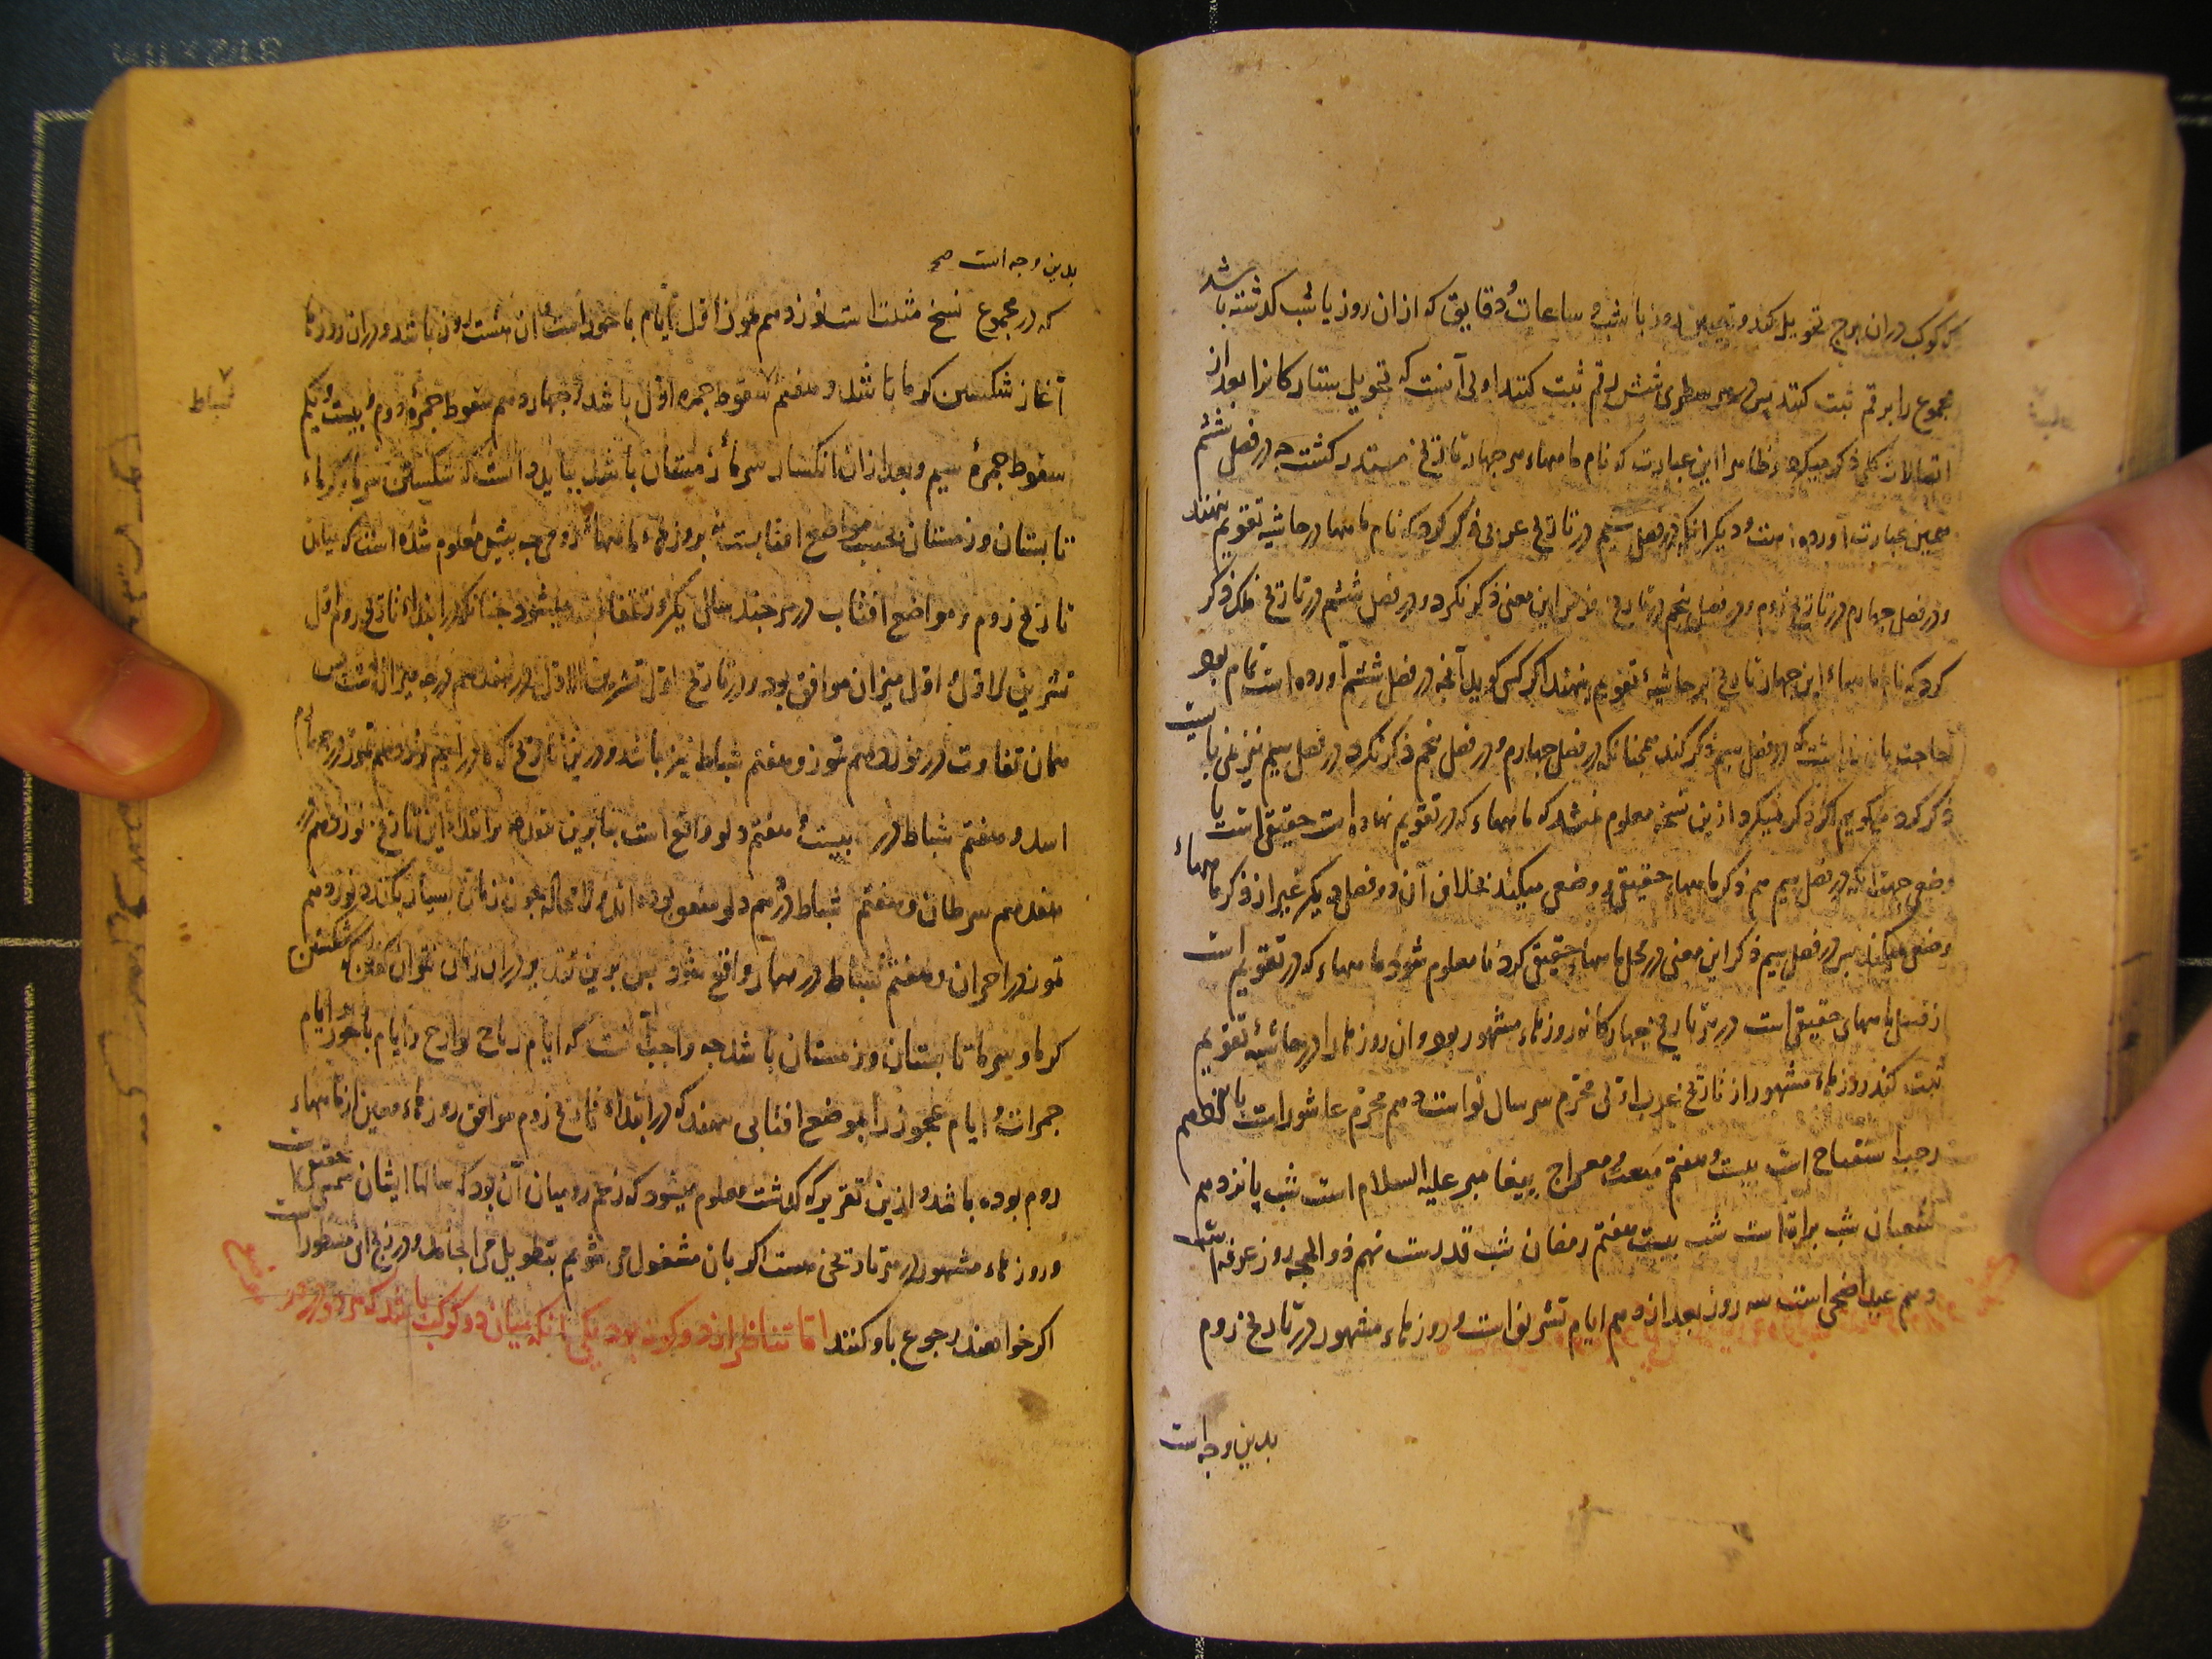 که کوکب در آن برج تحویل کند و تعیین روز یا شب و ساعات و دقایق که از ان روز یا شب کذشته باشد
مجموع را برقم ثبت کنند پس در هر سطری شش رقم ثبت کنند اولی آنست که تحویل ستارکانرا بعد از
اتصالات کلی ذکر میکرد و ظاهرا این عبارت که نام ماههاء هر چهار تاریخ مستدرکست چه در فصل ششم
همین عبارت آورده است و دیکر انکه در فصل سیم در تاریخ عربی ذکر کرد که نام ماهها در حاشیه تقویم نهند
و در فصل چهارم در تاریخ روم و در فصل پنجم در تاریخ فرس این معنی ذکر نکرد و در فصل ششم در تاریخ ملکی ذکر
کرد که نام ماههاء این چهار تاریخ بر حاشیهٔ تقویم نهند اکر کسی کوید آنچه در فصل ششم آورده است تمام بود
حاجت بان نداشت که در فصل سیم ذکر کند همچنانکه در فصل چهارم و در فصل پنجم ذکر نکرد در فصل سیم نیز نمی بایست
ذکر کرد میکویم اکر ذکر نمیکرد ازین نسخه معلوم نمیشد که ماههاء که در تقویم نهاده است حقیقی است یا
وضعی جهت انکه در فصل سیم هم ذکر ماههاء حقیقی و وضعی میکند بخلاف آن دو فصل دیکر غیر از ذکر ماههاء
وضعی نمیکند پس در فصل سیم ذکر این معنی در محل ماهها حقیقی کرد تا معلوم شود که ماههاء که در تقویم است
از قبیل ماههای حقیقی است در هر تاریخ چهارکانه روزهاء مشهور بود و ان روزها را در حاشیهٔ تقویم
ثبت کنند روزهاء مشهور از تاریخ عرب اولی محرم سر سال نو است دهم محرم عاشوراست پانزدهم
رجب استفتاح است بیست و هفتم مبعث و معراج پیغامبر علیه السلام است شب پانزدهم
شعبان شب براة است شب بیست هفتم رمضان شب قدرست نهم ذوالحجه روز عرفه است
دهم عید اضحی است سه روز بعد از دهم ایام تشریق است و روزهاء مشهور در تاریخ روم
بدین وجه است
بدین وجه است صح
که در مجموع نسخ مثبت است نوزدهم تموز اول ایام باحور است و ان هشت روز باشد و در ان روزها
آغاز شکستن کرما باشد و هفتم سقوط جمره اول باشد و چهاردهم سقوط جمرهٔ دوم و بیست و یکم
شباط
سقوط جمرهٔ سیم و بعد از ان انکسار سرماء زمستان باشد بباید دانست که شکستن سرما و کرماء
تابستان و زمستان بحسب مواضع افتابست نه بروزهاء ماههاء رومی چه پیش معلوم شده است که میان
تاریخ روم و مواضع افتاب در هر چند سالی یکروز تفاوت میشود چنانکه در ابتداء تاریخ روم اول
تشرین الاول و اول میزان موافق بود و در تاریخ اول تشرین الاول در هفدهم درجه میزان است پس
همان تفاوت در نوزدهم تموز و هفتم شباط نیز باشد و درین تاریخ که ما در انیم نوزدهم تموز در چهارم
اسد و هفتم شباط در بیست و هفتم دلو واقع است بنابرین مقدمه در ابتداء این تاریخ نوزدهم در
هفدهم سرطان و هفتم شباط در دهم دلو متفق بوده اند و لا محاله چون زمان بسیار بکذرد نوزدهم
تموز در احزان و هفتم شباط در بهار واقع شود پس برین تقدیر در ان زمان نتوان کفتن که شکستن
کرما و سرما تابستان و زمستان باشد چه واجب آنست که ایام ریاح لوارح و ایام باحور و ایام
جمرات و ایام عجوز را بموضع افتابی نهند که در ابتداء تاریخ روم موافق روزهاء معین از ماههاء
روم بوده باشد و ازین تقریر که کذشت معلوم میشود که زعم رومیان آن بود که سالها ایشان شمسی حقیقی است
و روزهاء مشهور در هر تاریخی هست اکر بان مشغول می شویم بتطویل می انجامد و در زیج ایلخانی مسطور است
اکر خواهند رجوع باو کنند اما تناظر از دو کونه بود یکی انکه میان دو کوکب باشد که هر دو در دو موضع